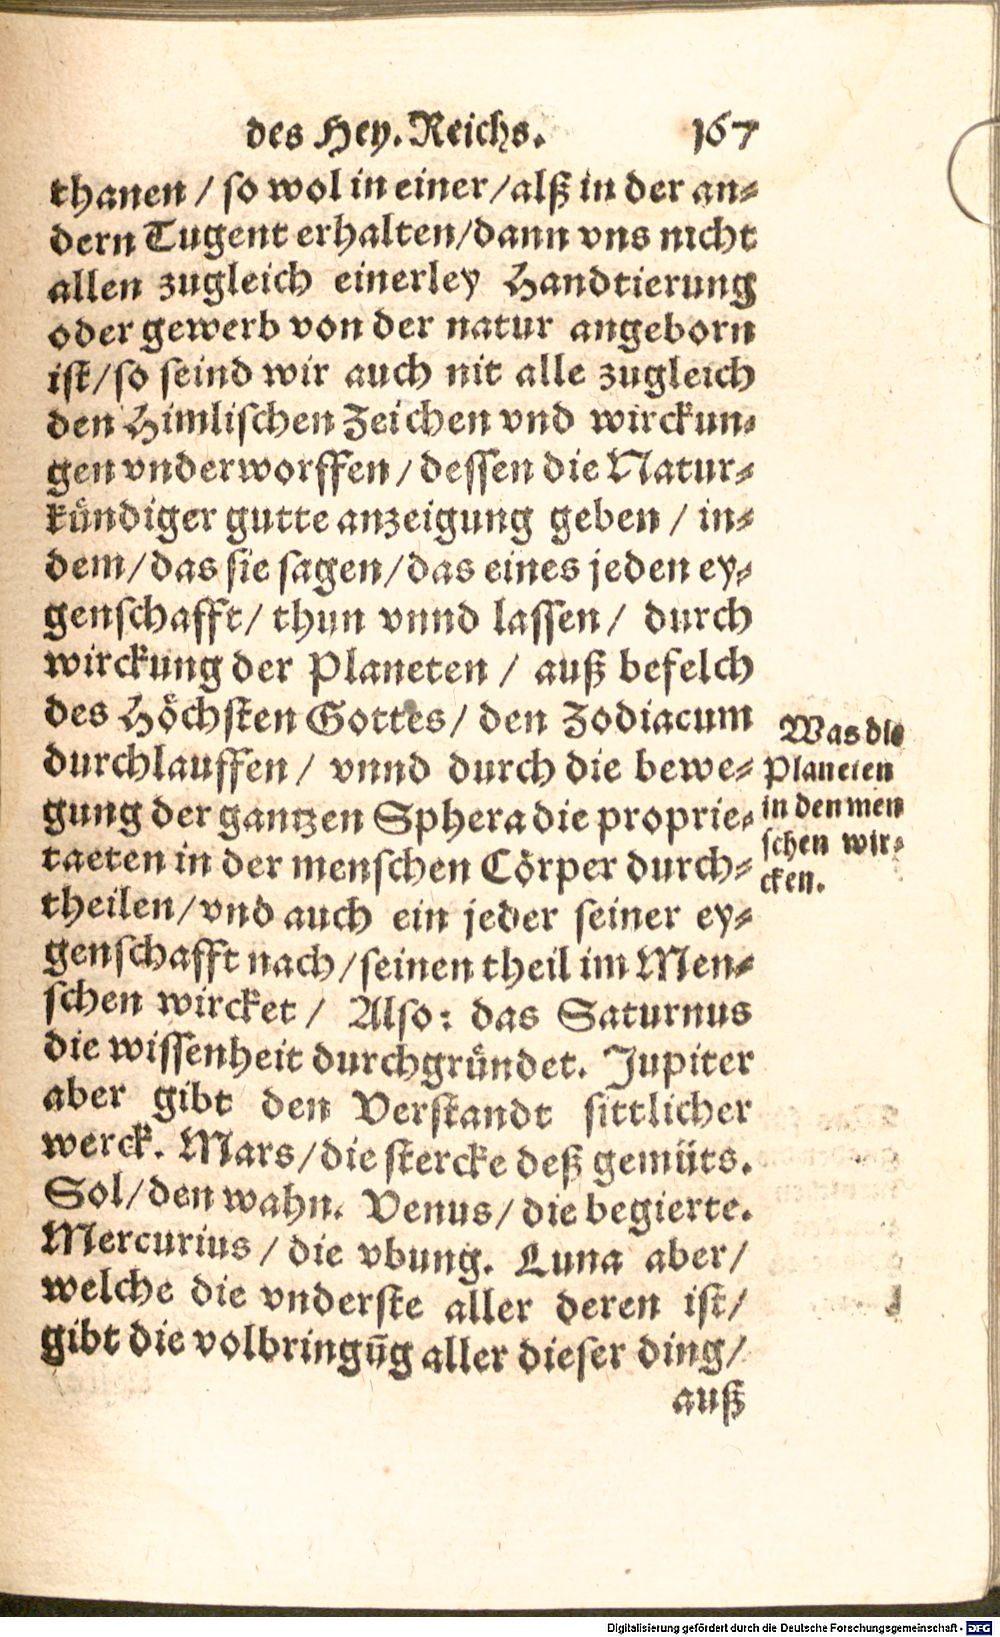 des Hey. Reichs. 167
thanen / so wol in einer / alß in der an⸗
dern Tugent erhalten / dann vns nicht
allen zugleich einerley Handtierung
oder gewerb von der natur angeborn
ist / so seind wir auch nit alle zugleich
den Himlischen Zeichen vnd wirckun⸗
gen vnderworffen / dessen die Natur⸗
kündiger gutte anzeigung geben / in⸗
dem / das sie sagen / das eines jeden ey⸗
genschafft / thun vnnd lassen / durch
wirckung der Planeten / auß befelch
des Höchsten Gottes / den Zodiacum
durchlauffen / vnnd durch die bewe⸗
gung der gantzen Sphera die proprie⸗
taeten in der menschen Cörper durch⸗
theilen / vnd auch ein jeder seiner ey⸗
genschafft nach / seinen theil im Men⸗
schen wircket / Also: das Saturnus
die wissenheit durchgründet. Jupiter
aber gibt den Verstandt sittlicher
werck. Mars / die stercke deß gemüts.
Sol / den wahn. Venus / die begierte.
Mercurius / die vbung. Luna aber /
welche die vnderste aller deren ist /
gibt die volbringūg aller dieser ding /
auß
Was die
Planeten
in den men
schen wir⸗
cken.
Digitalisierung gefördert durch die Deutsche Forschungsgemeinschaft - DFG